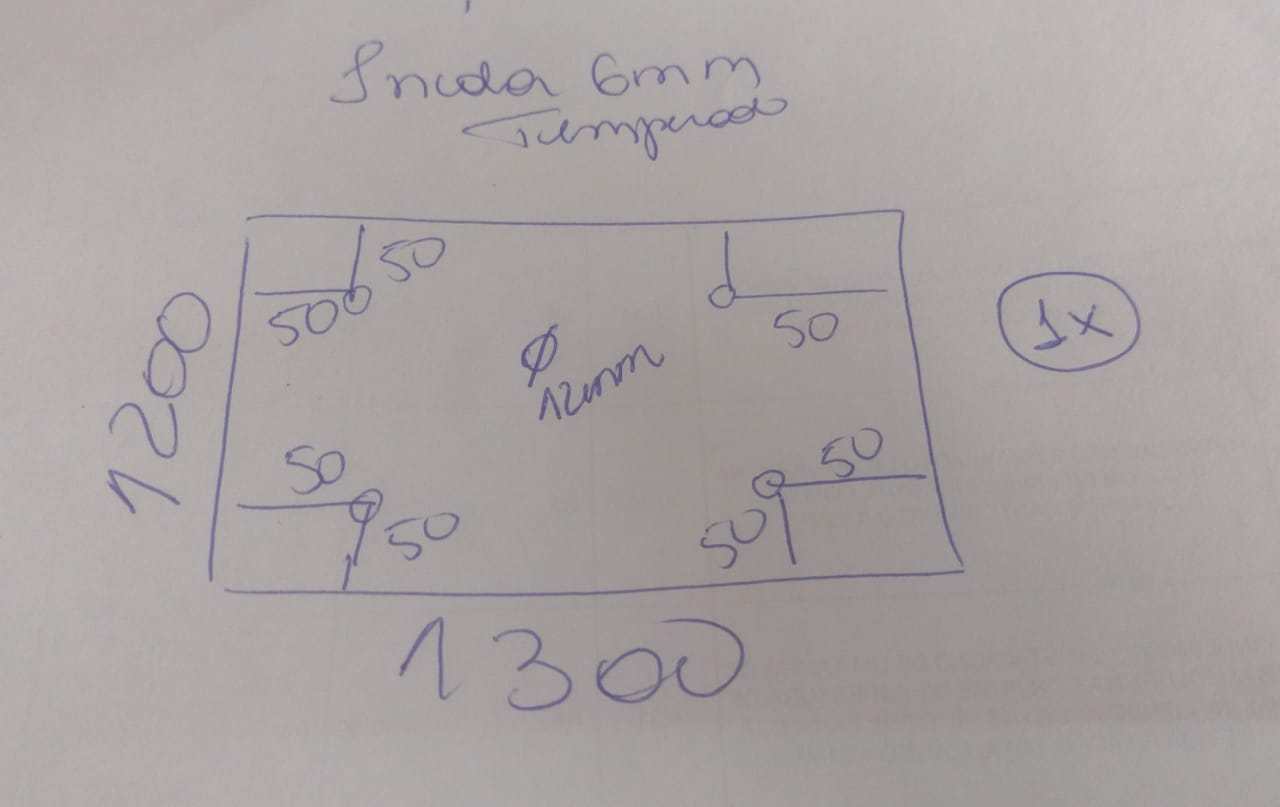 Incolor 6mm
Temperado
50
50
50
1x
1200
Ø
12mm
50
50
50
50
1300